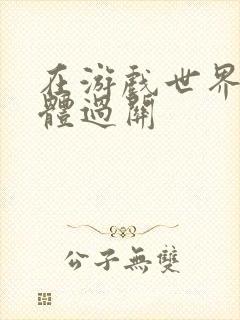 在游戏世界
體過關
公子無雙